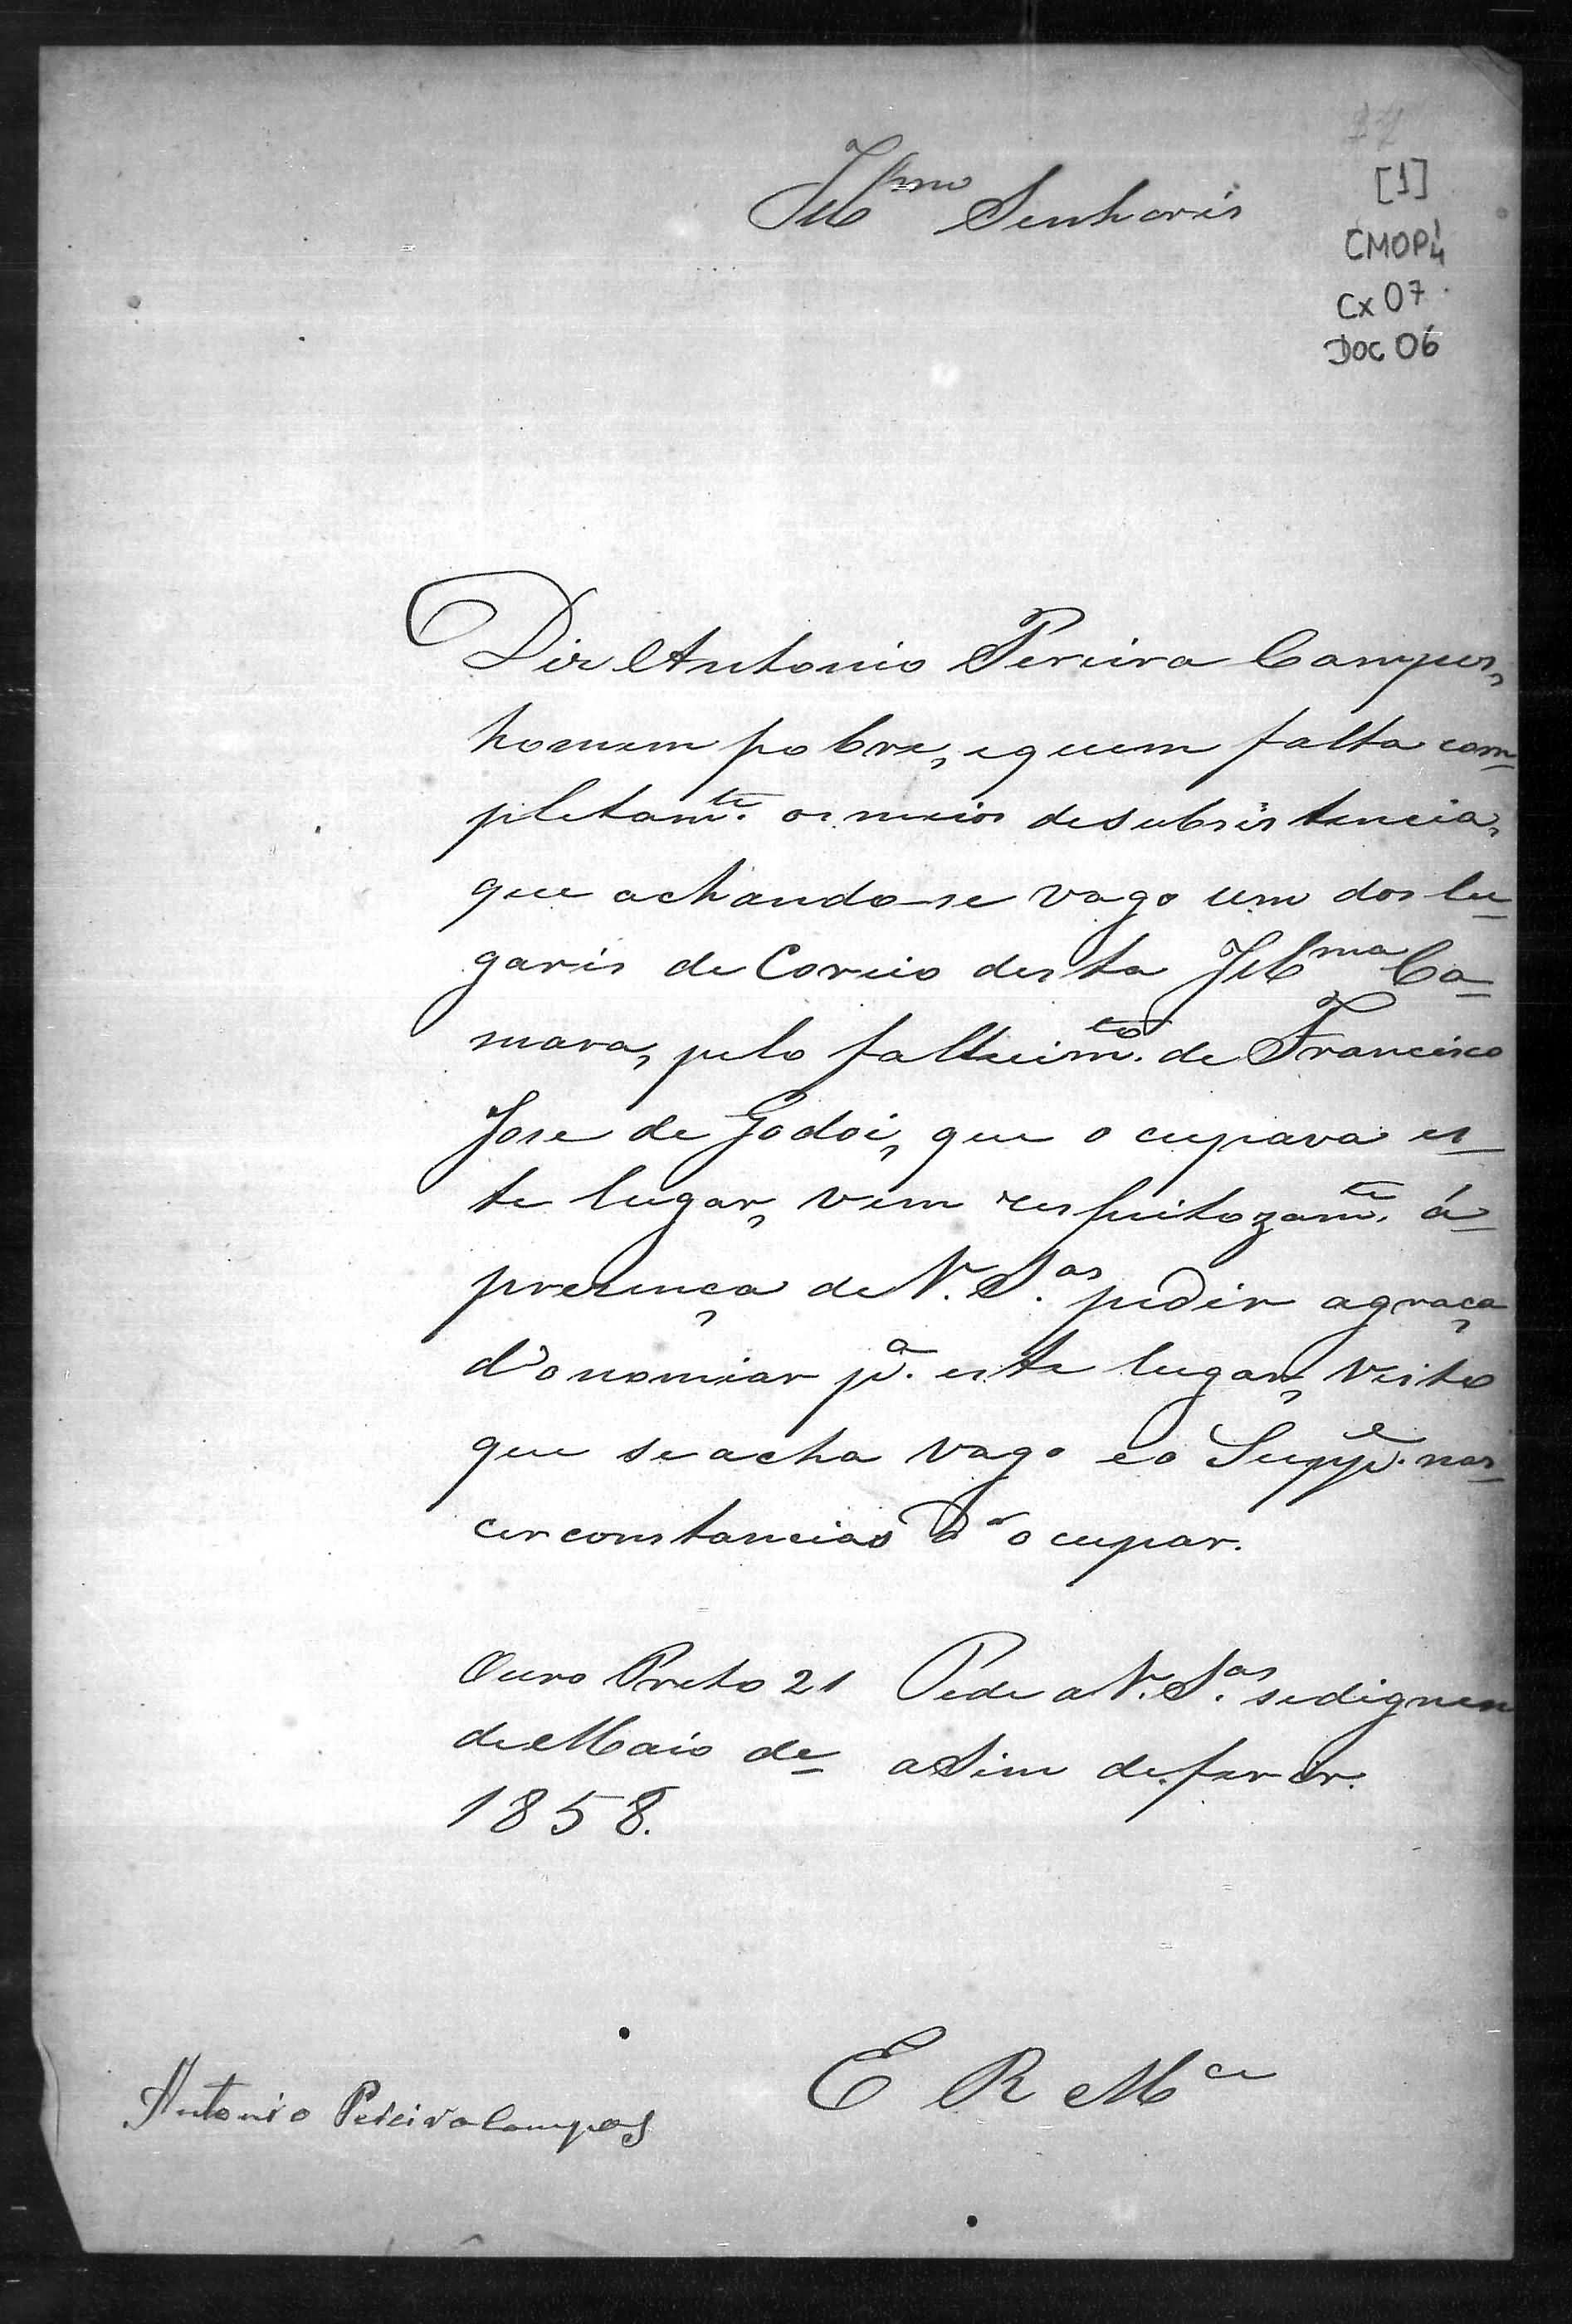 [1]
Ill^mos Senhores
CMOP 1/4
Cx 07
Doc 06
Diz Antonio Pereira Campos,
homem pobre, e quem falta com-
pletam^te. os meios de subsistencia,
que achando-se vago um dos lu-
gares de Correio desta Ill^ma Ca-
mara, pelo fallecim^to. de Francisco
Jose de Godoi, que ocupava es-
te lugar, vem respeitozam^te. á
prezença de V. S.^as pedir a graça
d'o nomiar p^a. este lugar, visto
que se acha vago e o Supp^e. nas
circonstancias d'o ocupar.
Ouro Preto 21 Pede a V. S.^as se dignem
de Maio de asim deferir.
1858.
E R M^ce
Antonio Pereira Campos